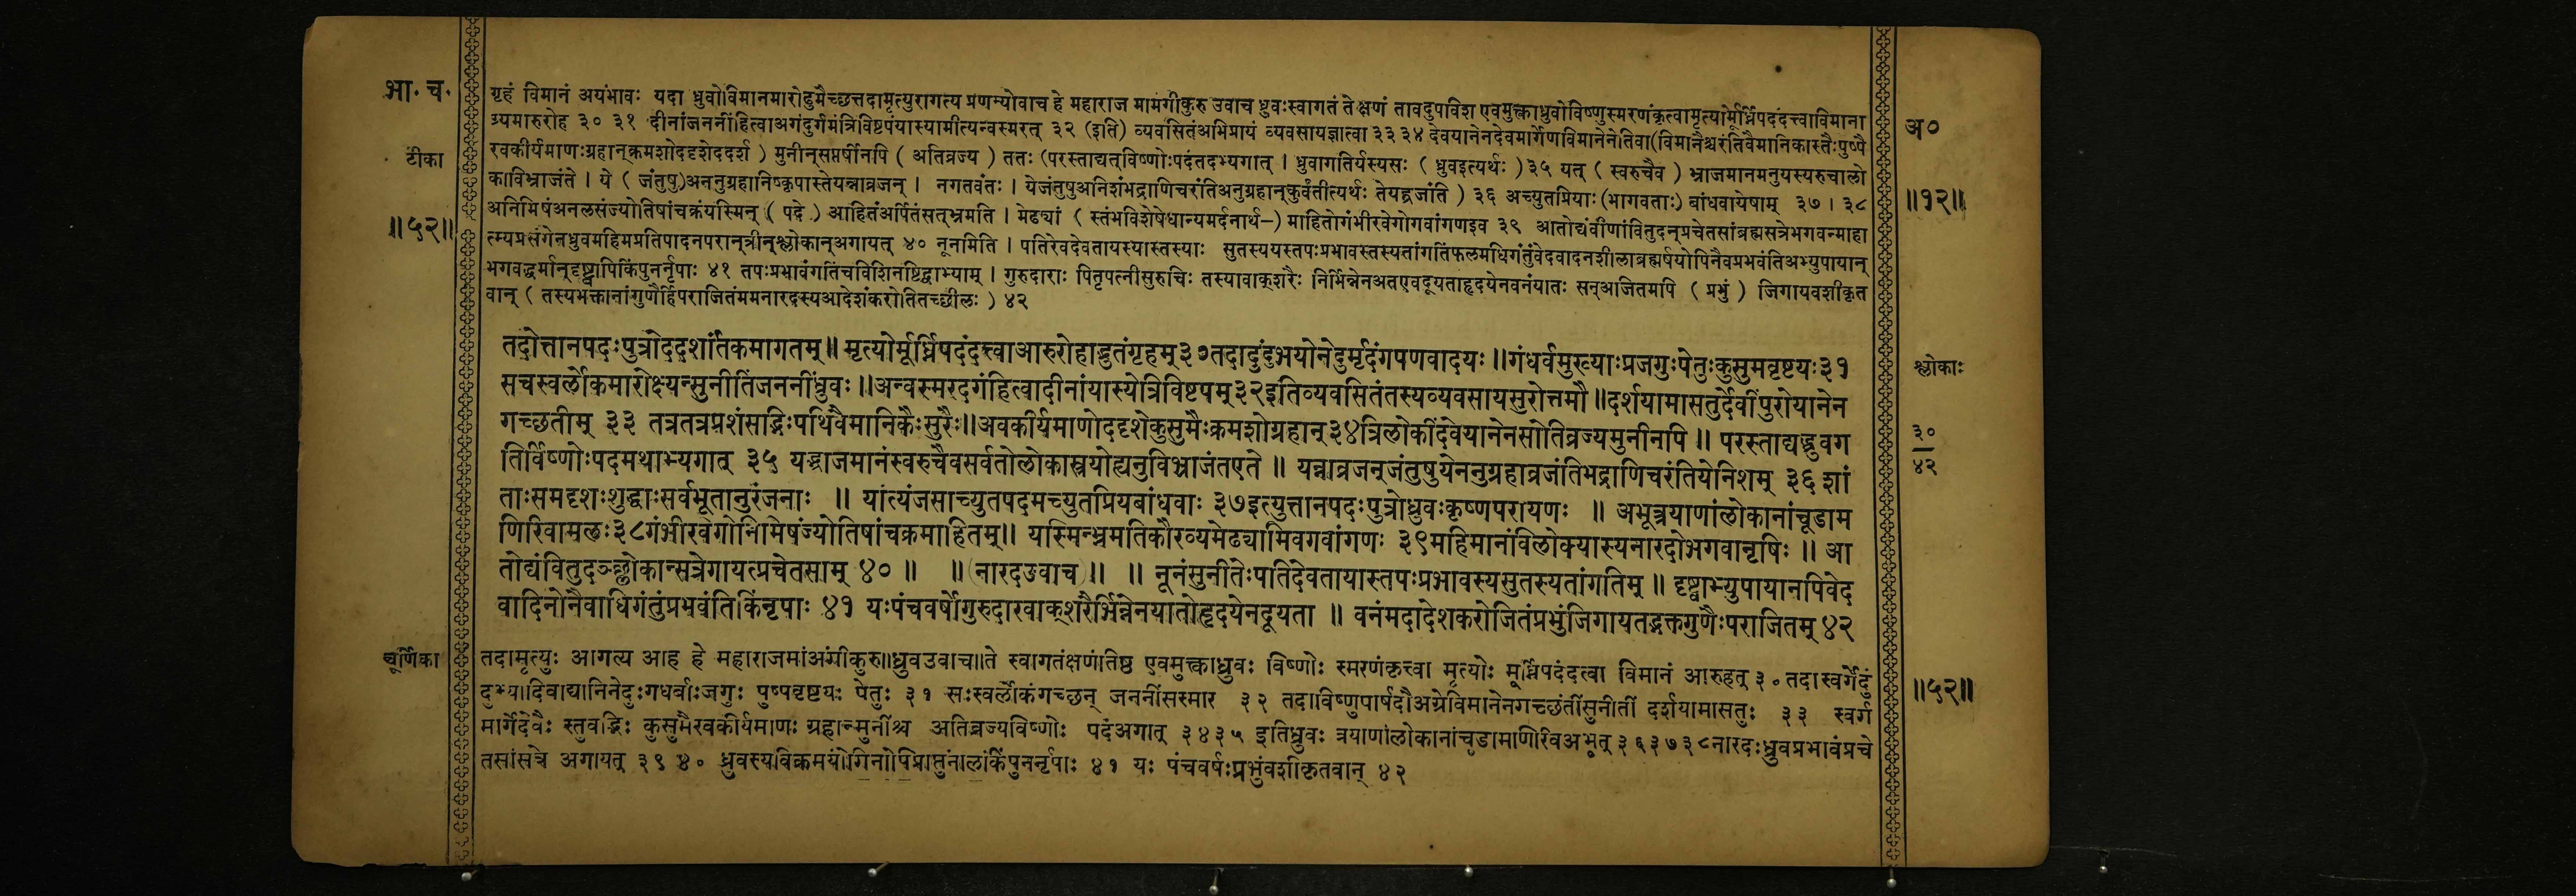 भा. च.
गृहं विमानं अयंभावः यदा ध्रुवोविमानमारोढुमैच्छत्तदामृत्युरागत्य प्रणम्योवाच हे महाराज मामंगीकुरु उवाच ध्रुवःस्वागतं ते क्षणं तावदुपविश एवमुक्त्वाध्रुवोविष्णुस्मरणंकृत्वामृत्योर्मूर्ध्निपदंदत्त्वाविमाना
ग्र्यमारुरोह ३० ३१ दीनांजननींहित्वाअगंदुर्गमंत्रिविष्टपंयास्यामीत्यन्वस्मरत् ३२ (इति) व्यवसितंअभिप्रायं व्यवसायज्ञात्वा ३३ ३४ देवयानेनदेवमार्गेणविमानेनेतिवा(विमानैश्चरंतिवैमानिकास्तैःपुष्पै
अ०
टीका
रवकीर्यमाणःग्रहान्क्रमशोददृशेददर्श ) मुनीन्सप्तर्षीनपि ( अतिव्रज्य ) ततः (परस्ताद्यत्विष्णोःपदंतदभ्यगात् । ध्रुवागतिर्यस्यसः ( ध्रुवइत्यर्थः ) ३५ यत् ( स्वरुचैव ) भ्राजमानमनुयस्यरुचालो
काविभ्राजंते । ये ( जंतुषु)अननुग्रहानिष्कृपास्तेयन्नाव्रजन् । नगतवंतः । येजंतुषुअनिशंभद्राणिचरंतिअनुग्रहान्कुर्वंतीत्यर्थः तेयद्व्रजांति ) ३६ अच्युतप्रियाः (भागवताः) बांधवायेषाम् ३७ । ३८
॥१२॥
॥५२॥
अनिमिषंअनलसंज्योतिषांचक्रंयस्मिन् ( पदे ) आहितंअर्पितंसत्भ्रमति । मेढ्यां ( स्तंभविशेषेधान्यमर्दनार्थ–) माहितोगंभीरवेगोगवांगणइव ३९ आतोद्यंवीणांवितुदन्प्रचेतसांब्रह्मसत्रेभगवन्माहा
त्म्यप्रसंगेनध्रुवमहिमप्रतिपादनपरान्त्रीन्श्लोकान्अगायत् ४० नूनमिति । पतिरेवदेवतायस्यास्तस्याः सुतस्ययस्तपःप्रभावस्तस्यतांगतिंफलमधिगंतुंवेदवादनशीलाब्रह्मर्षयोपिनैवप्रभवंतिअभ्युपायान्
भगवद्धर्मान्दृष्ट्वापिकिंपुनर्नृपाः ४१ तपःप्रभावंगतिंचविशिनष्टिद्वाभ्याम् । गुरुदाराः पितृपत्नीसुरुचिः तस्यावाक्शरैः निर्भिन्नेनअतएवदूयताहृदयेनवनंयातः सन्अजितमपि ( प्रभुं ) जिगायवशीकृत
वान् ( तस्यभक्तानांगुणैर्हिपराजितंममनारदस्यआदेशंकरोतितच्छीलः ) ४२
तदोत्तानपदःपुत्रोददर्शांतकमागतम्॥ मृत्योर्मूर्ध्निपदंदत्त्वाआरुरोहाद्भुतंगृहम्३०तदादुंदुभयोनेदुर्मृदंगपणवादयः ॥गंधर्वमुख्याःप्रजगुःपेतुःकुसुमवृष्टयः३१
श्लोकाः
सचस्वर्लोकमारोक्ष्यन्सुनीतिंजननींध्रुवः ॥अन्वस्मरदगंहित्वादीनांयास्येत्रिविष्टपम्३२इतिव्यवसितंतस्यव्यवसायसुरोत्तमौ ॥दर्शयामासतुर्देवींपुरोयानेन
गच्छतीम् ३३ तत्रतत्रप्रशंसद्भिःपथिवैमानिकैःसुरैः॥अवकीर्यमाणोददृशेकुसुमैःक्रमशोग्रहान्३४त्रिलोकींदेवयानेनसोतिव्रज्यमुनीनपि ॥ परस्ताद्यद्ध्रुवग
३०
४२
तिर्विष्णोःपदमथाभ्यगात् ३५ यद्भ्राजमानंस्वरुचैवसर्वतोलोकास्त्रयोह्यनुविभ्राजंतएते ॥ यन्नाव्रजन्जंतुषुयेननुग्रहाव्रजंतिभद्राणिचरंतियेनिशम् ३६ शां
ताःसमदृशःशुद्धाःसर्वभूतानुरंजनाः ॥ यांत्यंजसाच्युतपदमच्युतप्रियबांधवाः ३७इत्युत्तानपदःपुत्रोध्रुवःकृष्णपरायणः ॥ अभूत्रयाणांलोकानांचूडाम
णिरिवामलः३८गंभीरवेगोनिमिषंज्योतिषांचक्रमाहितम्॥ यस्मिन्भ्रमतिकौरव्यमेढ्यामिवगवांगणः ३९महिमानंविलोक्यास्यनारदोभगवानृषिः ॥ आ
तोद्यंवितुदञ्छ्लोकान्सत्रेगायत्प्रचेतसाम् ४० ॥ ॥ (नारदउवाच) ॥ ॥ नूनंसुनीतेःपतिदेवतायास्तपःप्रभावस्यसुतस्यतांगतिम् ॥ दृष्ट्वाभ्युपायानपिवेद
वादिनोनैवाधिगंतुंप्रभवंतिकिंनृपाः ४१ यःपंचवर्षोगुरुदारवाक्शरैर्भिन्नेनयातोहृदयेनदूयता ॥ वनंमदादेशकरोजितंप्रभुंजिगायतद्भक्तगुणैःपराजितम् ४२
चूर्णिका
तदामृत्युः आगत्य आह हे महाराजमांअंगीकुरु॥ध्रुवउवाच॥ते स्वागतंक्षणंतिष्ठ एवमुक्त्वाध्रुवः विष्णोः स्मरणंकृत्त्वा मृत्योः मूर्ध्निपदंदत्वा विमानं आरुहत् ३० तदास्वर्गेदुं
दुभ्यादिवाद्यानिनेदुःगंधर्वाःजगुः पुष्पवृष्टयः पेतुः ३१ सःस्वर्लोकंगच्छन् जननींसस्मार ३२ तदाविष्णुपार्षदौअग्रेविमानेनगच्छंतींसुनीतीं दर्शयामासतुः ३३ स्वर्ग
॥५२॥
मार्गेदेवैः स्तुवद्भिः कुसुमैरवकीर्यमाणः ग्रहान्मुनींश्च अतिव्रज्यविष्णोः पदंअगात् ३४३५ इतिध्रुवः त्रयाणांलोकानांचूडामणिरिवअभूत् ३६३७३८नारदःध्रुवप्रभावंप्रचे
तसांसत्रे अगायत् ३९ ४० ध्रुवस्यविक्रमंयोगिनोपिप्राप्तुंनालंकिंपुनर्नृपाः ४१ यः पंचवर्षःप्रभुंवशीकृतवान् ४२